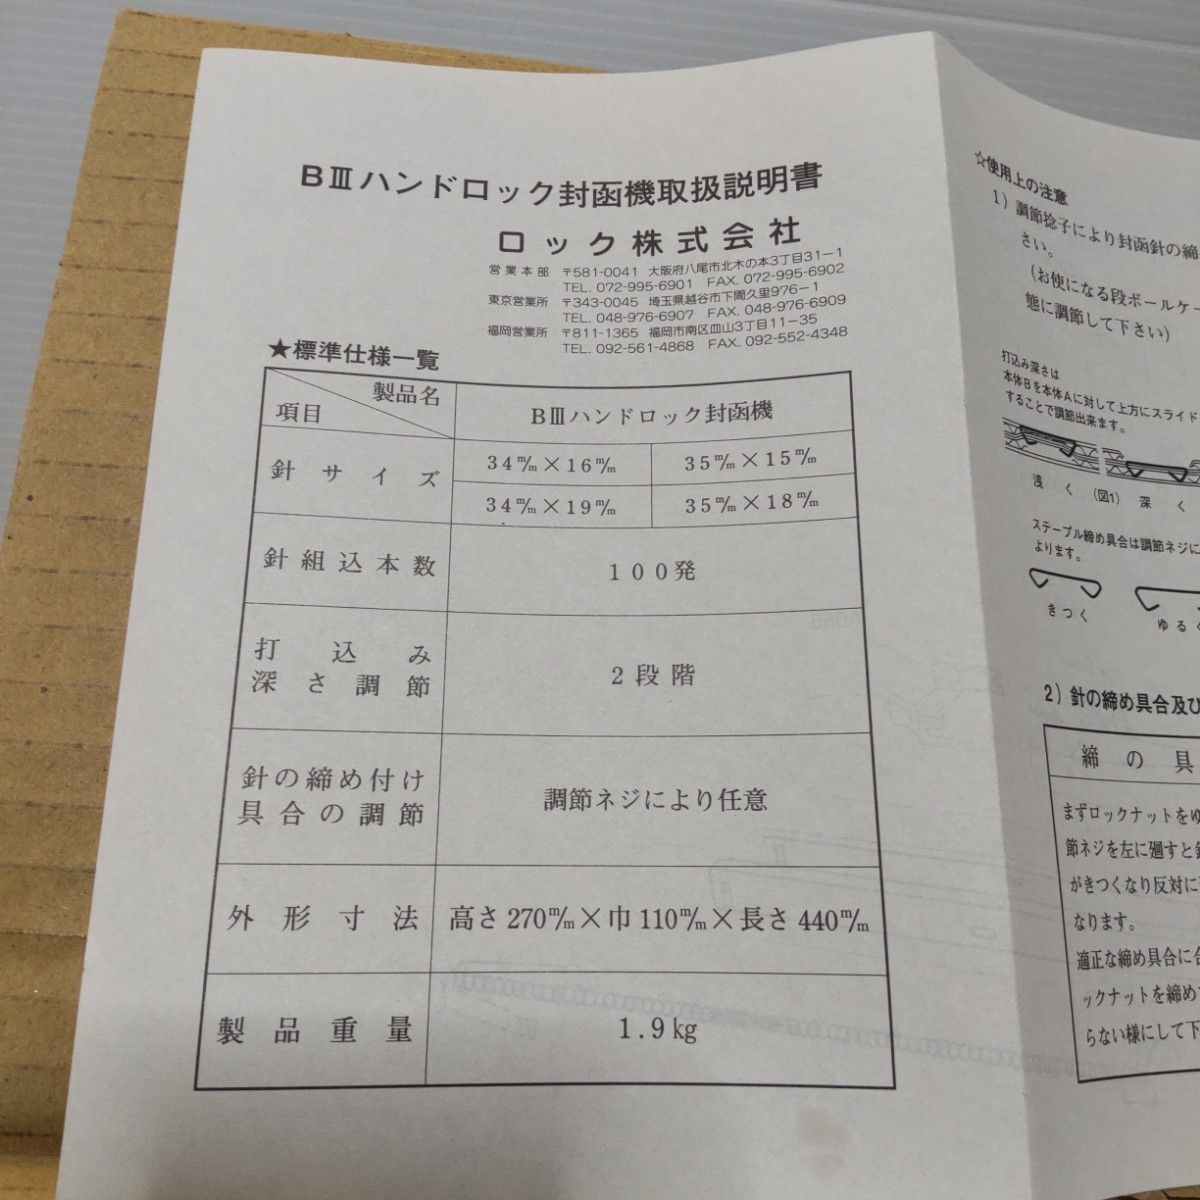 BⅢハンドロック封函機取扱説明書
ロック株式会社
営業本部 〒581-0041 大阪府八尾市北木の本3丁目31-1
TEL. 072-995-6901 FAX. 072-995-6902
東京営業所 〒343-0045 埼玉県越谷市下間久里976-1
TEL. 048-976-6907 FAX. 048-976-6909
福岡営業所 〒811-1365 福岡市南区皿山3丁目11-35
TEL. 092-561-4868 FAX. 092-552-4348
★標準仕様一覧
製品名
項目
BⅢハンドロック封函機
針サイズ
34m/m×16m/m 35m/m×15m/m
34m/m×19m/m 35m/m×18m/m
針組込本数 100発
打込み
深さ調節
2段階
針の締め付け
具合の調節
調節ネジにより任意
外形寸法 高さ270m/m×巾110m/m×長さ440m/m
製品重量 1.9kg
☆使用上の注意
1) 調節捻子により封函針の締
さい。
(お使になる段ボールケー
態に調節して下さい)
打込み深さは
本体Bを本体Aに対して上方にスライド
することで調節出来ます。
浅く (図1) 深く
ステープル締め具合は調節ネジに
よります。
きつく ゆるく
2) 針の締め具合及び
締の具
まずロックナットをゆ
節ネジを左に廻すと針
がきつくなり反対に
なります。
適正な締め具合に合
ックナットを締め
らない様にして下